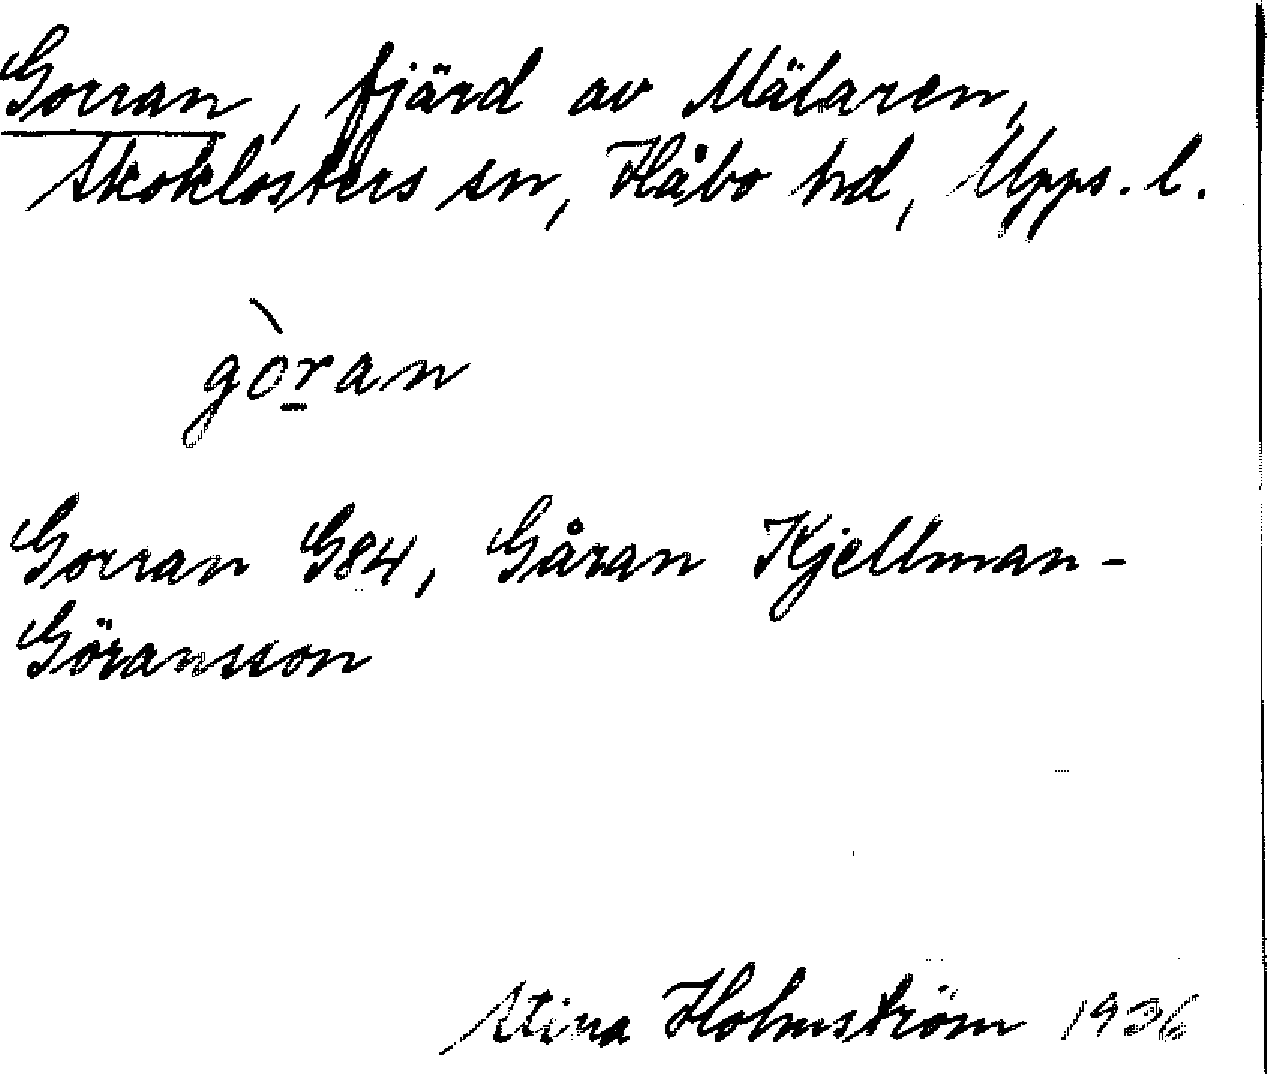 Gorran, fjärd av Mälaren,
Skoklosters sn, Håbo hd, Upps. l.
gòr̲an
Gorran G84, Gåran Kjellman-
Göransson
Stina Holmström 1936